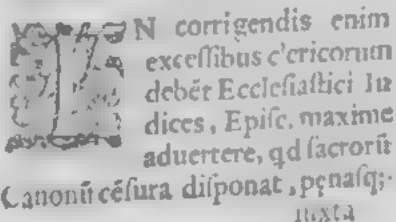 IN corrigendis enim
excessibus c'ericorum
debēt Ecclesiastici Iu
dices, Episc. maxime
aduertere, qd sacrorū
Canonū cēsura disponat, pęnasq;
iuxta